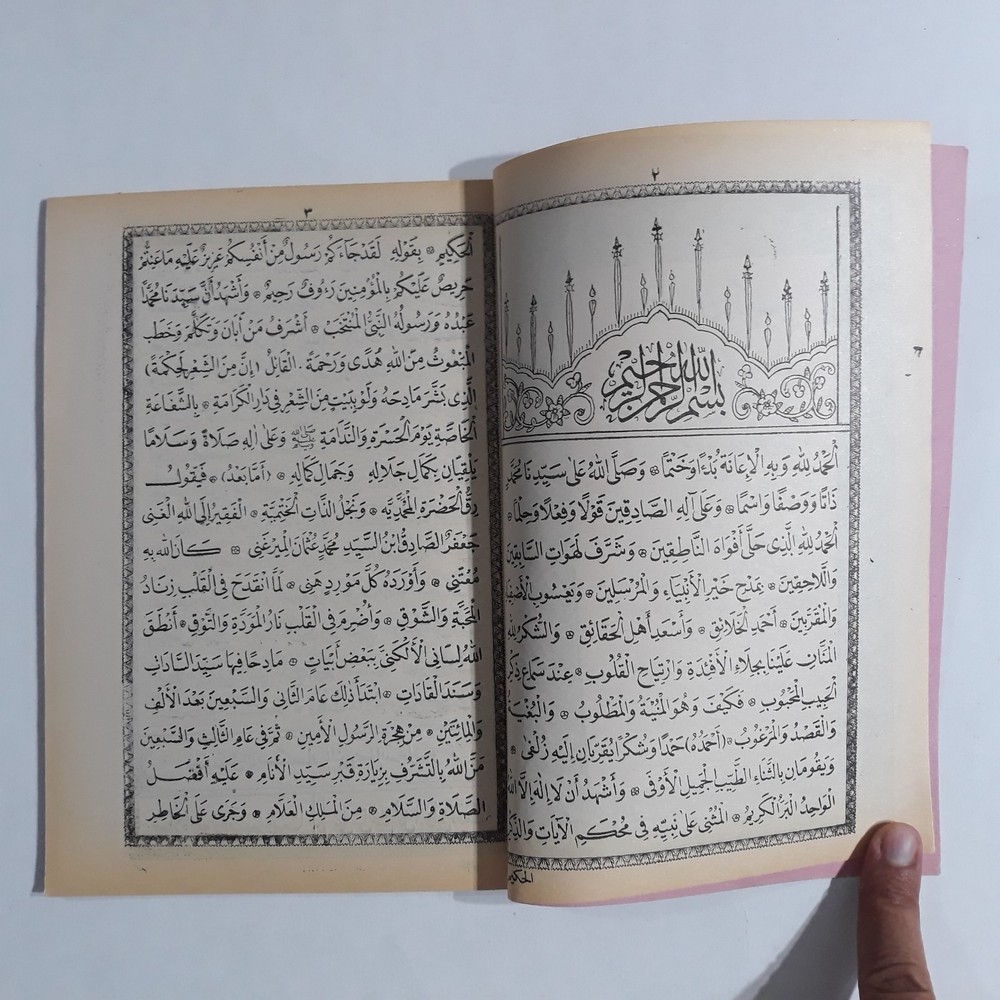 ٢
بسم الله الرحمن الرحيم
اَلْحَمْدُ لِلهِ وَبِهِ الْإِعَانَةُ بُدْءًا وَخَتْمًا ۞ وَصَلَّى اللهُ عَلَى سَيِّدِنَا مُحَمَّدٍ
ذَاتًا وَوَصْفًا وَاسْمًا ۞ وَعَلَى آلِهِ الصَّادِقِينَ قَوْلًا وَفِعْلًا وَحِلْمًا ۞
اَلْحَمْدُ لِلهِ الَّذِى حَلَّى أَفْوَاهَ النَّاطِقِينَ ۞ وَشَرَّفَ لَهَوَاتِ السَّابِقِينَ
وَاللَّاحِقِينَ ۞ بِمَدْحِ خَيْرِ الْأَنْبِيَاءِ وَالْمُرْسَلِينَ ۞ وَيَعْسُوبِ الْأَصْفِيَا
وَالْمُقَرَّبِينَ ۞ أَحْمَدِ الْخَلَائِقِ ۞ وَأَسْعَدِ أَهْلِ الْحَقَائِقِ ۞ وَالشُّكْرُ لِلهِ
الْمَنَّانِ عَلَيْنَا بِجَلَاءِ الْأَفْئِدَةِ وَارْتِيَاحِ الْقُلُوبِ ۞ عِنْدَ سَمَاعِ ذِكْرِ
الْحَبِيبِ الْمَحْبُوبِ ۞ فَكَيْفَ وَهُوَ الْمُنْيَةُ وَالْمَطْلُوبُ ۞ وَالْبُغْيَةُ
وَالْقَصْدُ وَالْمَرْغُوبُ ۞ (أَحْمَدُهُ) حَمْدًا وَشُكْرًا يُقَرِّبَانِ إِلَيْهِ زُلْفَى ۞
وَيَقُومَانِ بِالثَّنَاءِ الطَّيِّبِ الْجَمِيلِ الْأَوْفَى ۞ وَأَشْهَدُ أَنْ لَا إِلٰهَ إِلَّا اللهُ
الْوَاحِدُ الْبَرُّ الْكَرِيمُ ۞ الْمُثْنِى عَلَى نَبِيِّهِ فِى مُحْكَمِ الْآيَاتِ وَالذِّكْرِ
الحكيم
٣
الْحَكِيمِ ۞ بِقَوْلِهِ لَقَدْ جَاءَكُمْ رَسُولٌ مِنْ أَنْفُسِكُمْ عَزِيزٌ عَلَيْهِ مَا عَنِتُّمْ
حَرِيصٌ عَلَيْكُمْ بِالْمُؤْمِنِينَ رَءُوفٌ رَحِيمٌ ۞ وَأَشْهَدُ أَنَّ سَيِّدَنَا مُحَمَّدًا
عَبْدُهُ وَرَسُولُهُ النَّبِىُّ الْمُنْتَخَبُ ۞ أَشْرَفُ مَنْ أَبَانَ وَتَكَلَّمَ وَخَطَبَ
الْمَبْعُوثُ مِنَ اللهِ هُدًى وَرَحْمَةً . الْقَائِلُ (إِنَّ مِنَ الشِّعْرِ لَحِكْمَةً)
الَّذِى بَشَّرَ مَادِحَهُ وَلَوْ بِبَيْتٍ مِنَ الشِّعْرِ فِى دَارِ الْكَرَامَةِ ۞ بِالشَّفَاعَةِ
الْخَاصَّةِ يَوْمَ الْحَسْرَةِ وَالنَّدَامَةِ ﷺ وَعَلَى آلِهِ صَلَاةً وَسَلَامًا
يَلِيقَانِ بِكَمَالِ جَلَالِهِ وَجَمَالِ كَمَالِهِ ۞ (أَمَّا بَعْدُ) ۞ فَيَقُولُ
رِقُّ الْحَضْرَةِ الْمُحَمَّدِيَّهْ ۞ وَنَجْلُ الذَّاتِ الْخَتْمِيَّةِ ۞ الْفَقِيرُ إِلَى اللهِ الْغَنِى
جَعْفَرٌ الصَّادِقُ ابْنُ السَّيِّدِ مُحَمَّدْ عُثْمَانَ الْمِيرْغَنِى ۞ كَانَ اللهُ بِهِ
مُعْتَنِى ۞ وَأَوْرَدَهُ كُلَّ مَوْرِدٍ هَنِى ۞ لَمَّا انْقَدَحَ فِى الْقَلْبِ زِنَادُ
الْمَحَبَّةِ وَالشَّوْقِ ۞ وَأُضْرِمَ فِى الْقَلْبِ نَارُ الْمَوَدَّةِ وَالتَّوْقِ ۞ أَنْطَقَ
اللهُ لِسَانِى الْأَلْكَنَ بِبَعْضِ أَبْيَاتٍ ۞ مَادِحًا فِيهَا سَيِّدَ السَّادَاتِ
وَسَنَدَ الْقَادَاتِ ۞ ابْتِدَاءُ ذٰلِكَ عَامَ الثَّانِى وَالسَّبْعِينَ بَعْدَ الْأَلْفِ
وَالْمِائَتَيْنِ ۞ مِنْ هِجْرَةِ الرَّسُولِ الْأَمِينِ ۞ ثُمَّ فِى عَامِ الثَّالِثِ وَالسَّبْعِينَ
مَنَّ اللهُ بِالتَّشَرُّفِ بِزِيَارَةِ قَبْرِ سَيِّدِ الْأَنَامِ ۞ عَلَيْهِ أَفْضَلُ
الصَّلَاةِ وَالسَّلَامِ ۞ مِنَ الْمَلِكِ الْعَلَّامِ ۞ وَجَرَى عَلَى الْخَاطِرِ